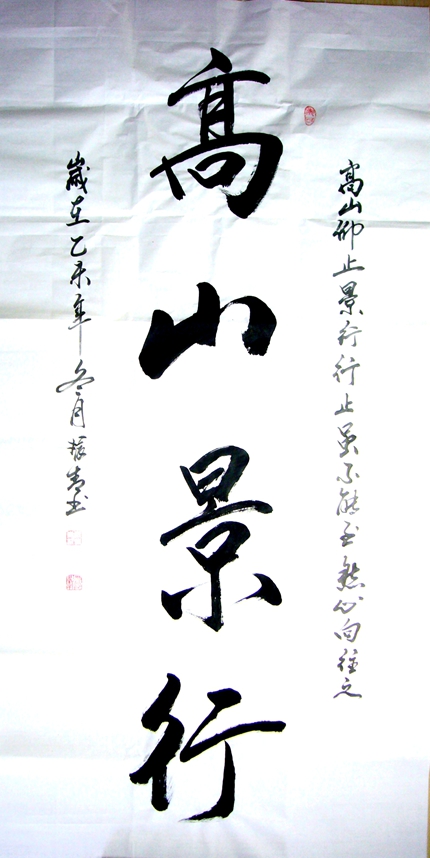 高山仰止景行行止虽不能至然心向往之
高山景行
歲在乙未年冬月振青书